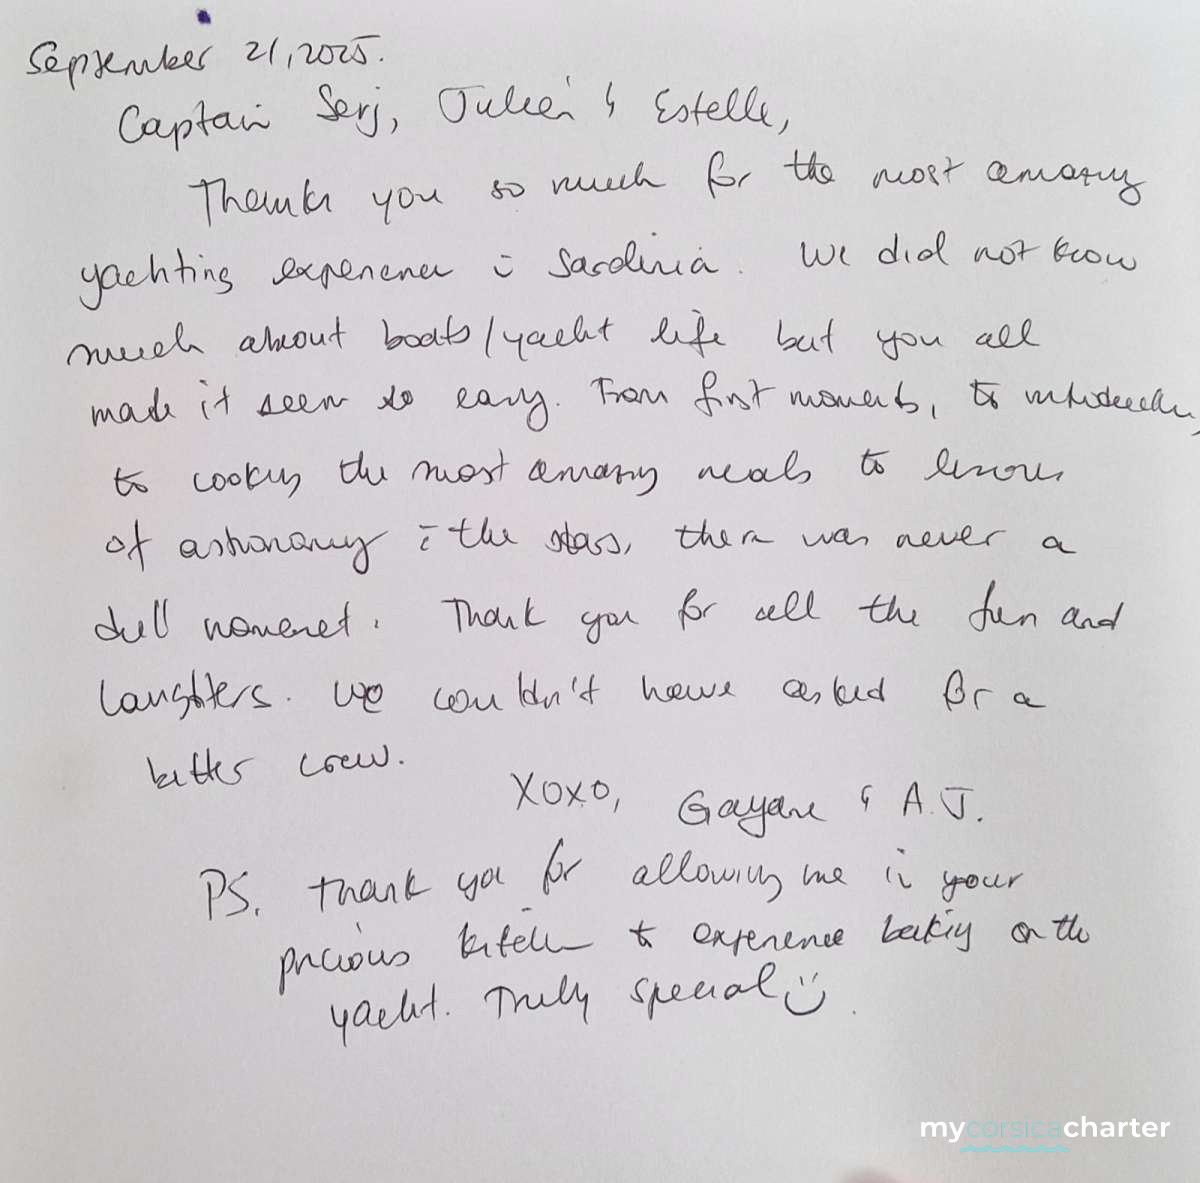 September 21, 2025.
Captain Serj, Julien & Estelle,
Thank you so much for the most amazing
yachting experience in Sardinia. We did not know
much about boats/yacht life but you all
made it seem so easy. From first moments, to introduction,
to cooking the most amazing meals to lessons
of astronomy in the stars, there was never a
dull moment. Thank you for all the fun and
laughters. We couldn't have asked for a
better crew.
XOXO, Gayane & A.J.
PS. Thank you for allowing me in your
precious kitchen to experience baking on the
yacht. Truly special
mycorsicacharter